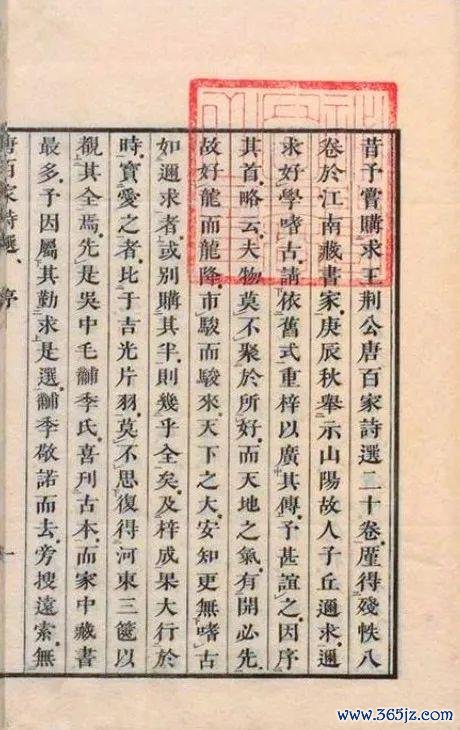 昔予嘗購求王荊公唐百家詩選二十卷厪得殘帙八
卷於江南藏書家庚辰秋舉示山陽故人子丘邇求邇
求好學嗜古請依舊式重梓以廣其傳予甚誼之因序
其首略云夫物莫不聚於所好而天地之氣有開必先
故好龍而龍降市駿而駿來天下之大安知更無嗜古
如邇求者或別購其半則幾乎全矣及梓成果大行於
時寶愛之者比于吉光片羽莫不思復得河東三篋以
觀其全焉先是吳中毛黼季氏喜刊古本而家中藏書
最多予因屬其勤求是選黼季敬諾而去旁搜遠索無
唐百家詩選 序 一
www.365jz.com